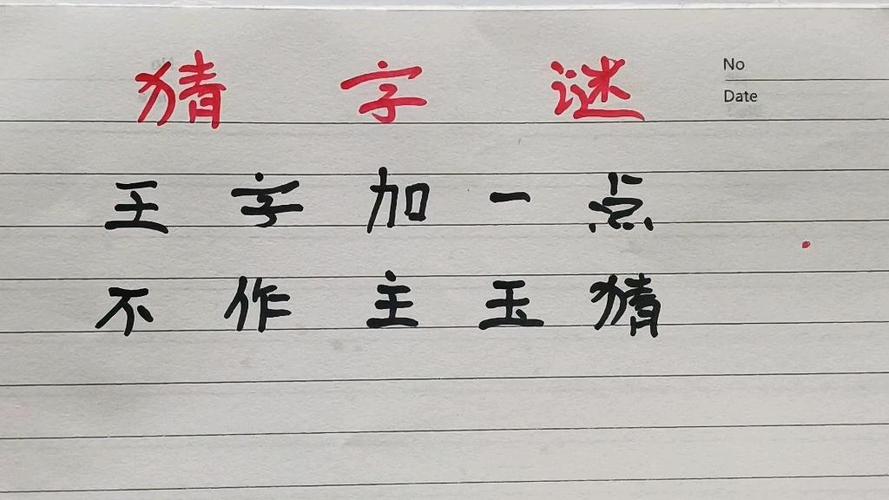 猜字谜
No
Date
王字加一点
不作主玉猜